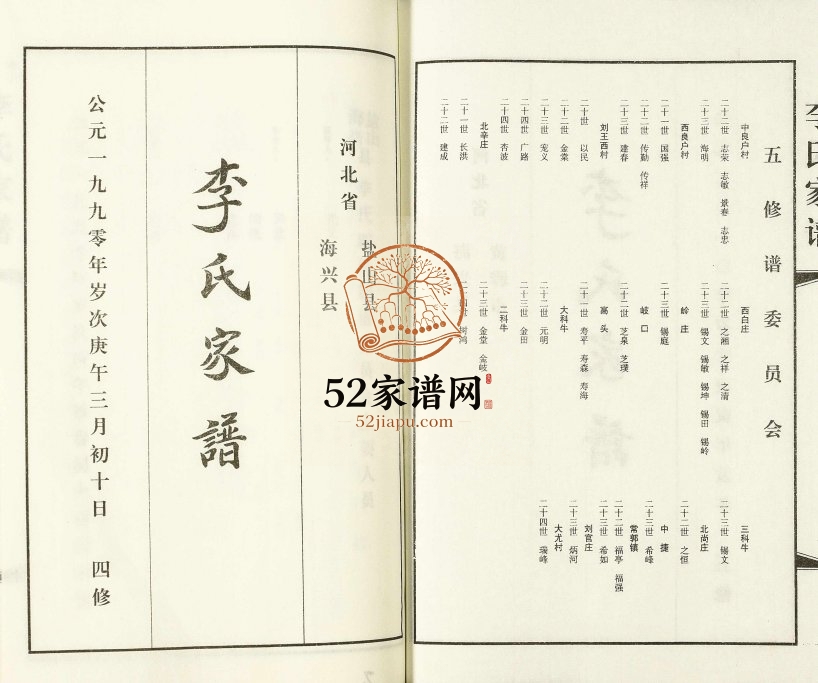 李氏家谱
五修谱委员会
中良户村
二十二世 志荣 志敏 景春 志忠
二十三世 海明
西良户村
二十一世 国强
二十二世 传勤 传祥
二十三世 建春
刘王西村
二十世 以民
二十二世 金堂
二十三世 宠义
二十四世 广路
二十四世 杏波
北辛庄
二十一世 长洪
二十二世 建成
西白庄
二十二世 之湘 之祥 之清
二十三世 锡文 锡敏 锡坤 锡田 锡岭
岭庄
二十三世 锡庭
岐口
二十二世 芝泉 芝璞
高头
二十一世 寿平 寿森 寿海
大科牛
二十二世 元明
二十三世 金田
二科牛
二十三世 金堂 金岐
二十四世 树鸿
三科牛
二十三世 锡文
北尚庄
二十二世 之恒
中捷
二十三世 希峰
常郭镇
二十二世 福亭 福强
二十三世 希如
刘官庄
二十三世 炳河
大尤村
二十四世 瑞峰
河北省
盐山县
海兴县
李氏家譜
公元一九九零年岁次庚午三月初十日 四修
52家谱网
52jiapu.com